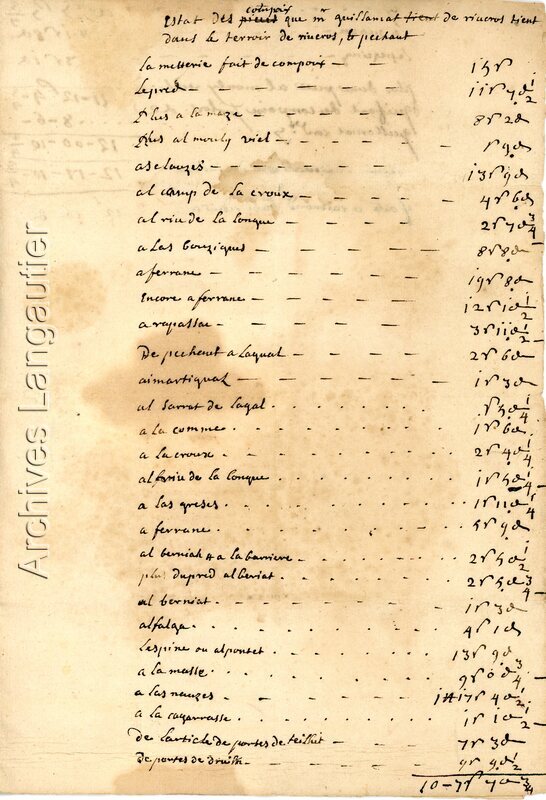 compoix
Estat des pieces que mr guillamat tient de riveros tient
dans le terroir de riveros, & pechaut
la metterie fait de compoix — — 1 s
Lepred — — — — 11 s 7 d 1/2
Plus a la maze — — — — 8 s 2 d
Plus al mouly viel — — — 1 s 9 d
aselauzes — — — — 13 s 9 d
al camp de la croux — — — 4 s 6 d
al riu de la longue — — — 2 s 7 d 3/4
a las bouzigues — — — 8 s 8 d
a ferrane — — — — 19 s 8 d
Encore a ferrane — — — 12 s 1 d 1/2
a rapassac — — — — 3 s 11 d 1/2
De pechaut a laqual — — — 2 s 6 d
aimartiqual — — — — 1 s 3 d
al sarrat de lagal . . . . . s 5 d 1/4
a la comme . . . . . . 1 s 6 d
a la croux . . . . . . 2 s 4 d 1/4
al sarriu de la longue . . . . 1 s 5 d 1/4
a las greses . . . . . . 1 s 11 d 1/4
a ferrane . . . . . . 5 s 9 d
al berniat a la barriere . . . . 2 s 5 d 1/2
plus dupred al beriat . . . . 2 s 5 d 3/4
al berniat . . . . . . 1 s 3 d
alfalga . . . . . . 4 s 1 d
Lespine ou alpontet . . . . 13 s 9 d
a la masse . . . . . . 9 s 0 d 3/4
a las nauzes — — — — 1 # 17 s 4 d 1/2
a la cagarrasse . . . . . 1 s 1 d 1/2
De larticle de portes de teillet — — 7 s 3 d
De portes de — — — 9 s 9 d 1/2
10 — 7 s 7 d 3/4
Archives Langautier